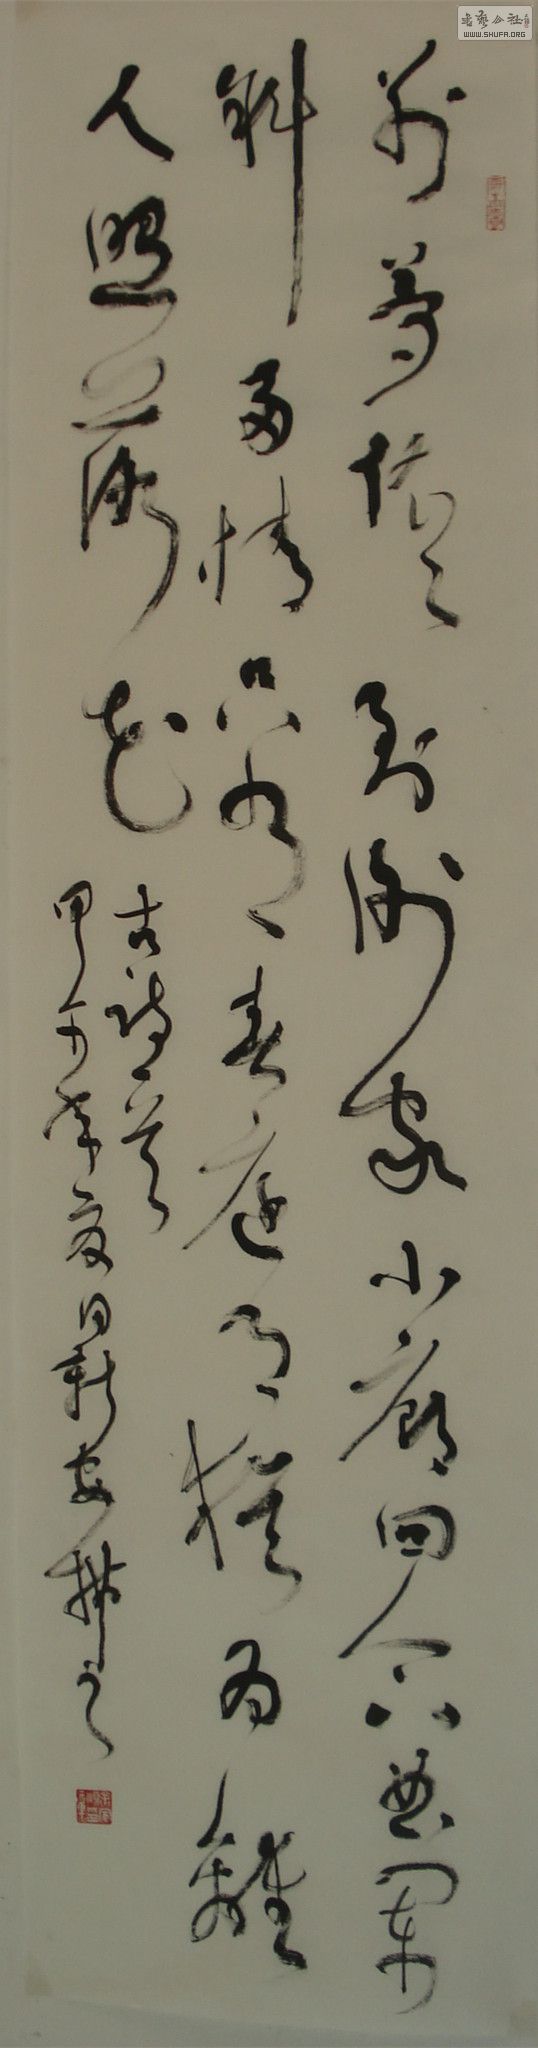 别梦依依到谢家小廊回合曲阑
斜多情只有春庭月犹为离
人照落花
古诗一首
甲午年夏日新安
WWW.SHUFA.ORG